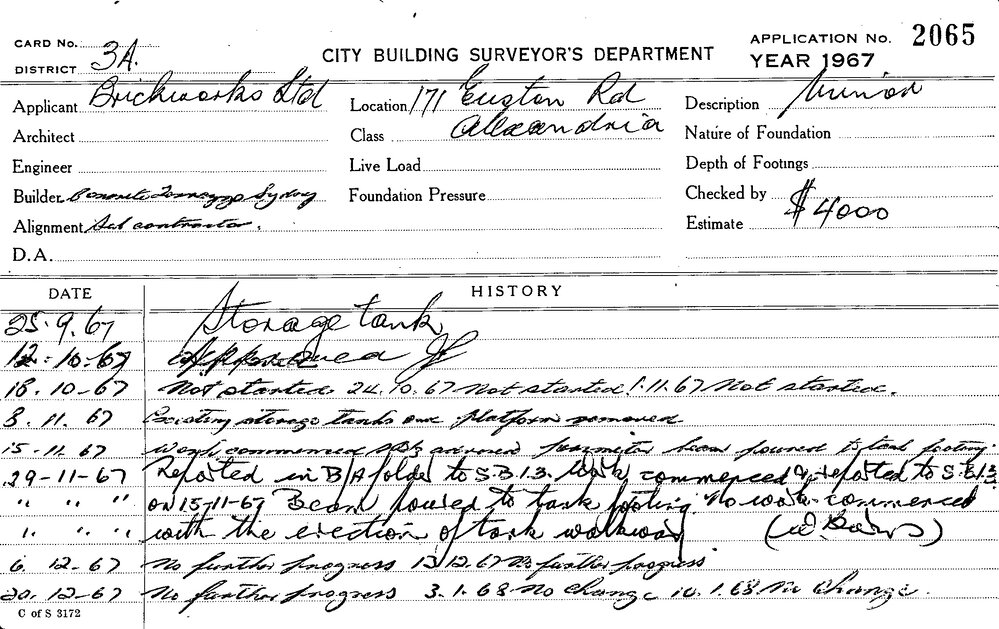 CARD No. 3A.
DISTRICT
CITY BUILDING SURVEYOR'S DEPARTMENT
APPLICATION No. 2065
YEAR 1967
Applicant Brickworks Ltd
Location 171 Euston Rd
Alexandria
Description Minor
Architect
Class
Nature of Foundation
Engineer
Live Load
Depth of Footings
Builder Concrete Terrazzo Sydney
Foundation Pressure
Checked by
Alignment Sub contractor.
Estimate $4000
D.A.
DATE
HISTORY
25.9.67 Storage tank
12-10-67 Approved
18.10-67 Not started 24.10.67 Not started 1.11.67 Not started.
8.11.67 Existing storage tanks and platform removed
15-11-67 Work commenced perimeter beam poured to tank footing
29-11-67 Reported in B/A folder to S.B.I.3. Work commenced & reported to S.B.I.3
" " " on 15-11-67 Beam poured to tank footing No work commenced
" " " with the erection of tank walkway
6.12-67 No further progress 13.12.67 No further progress
20.12-67 No further progress 3.1.68 No Change 10.1.68 No Change.
C of S 3172